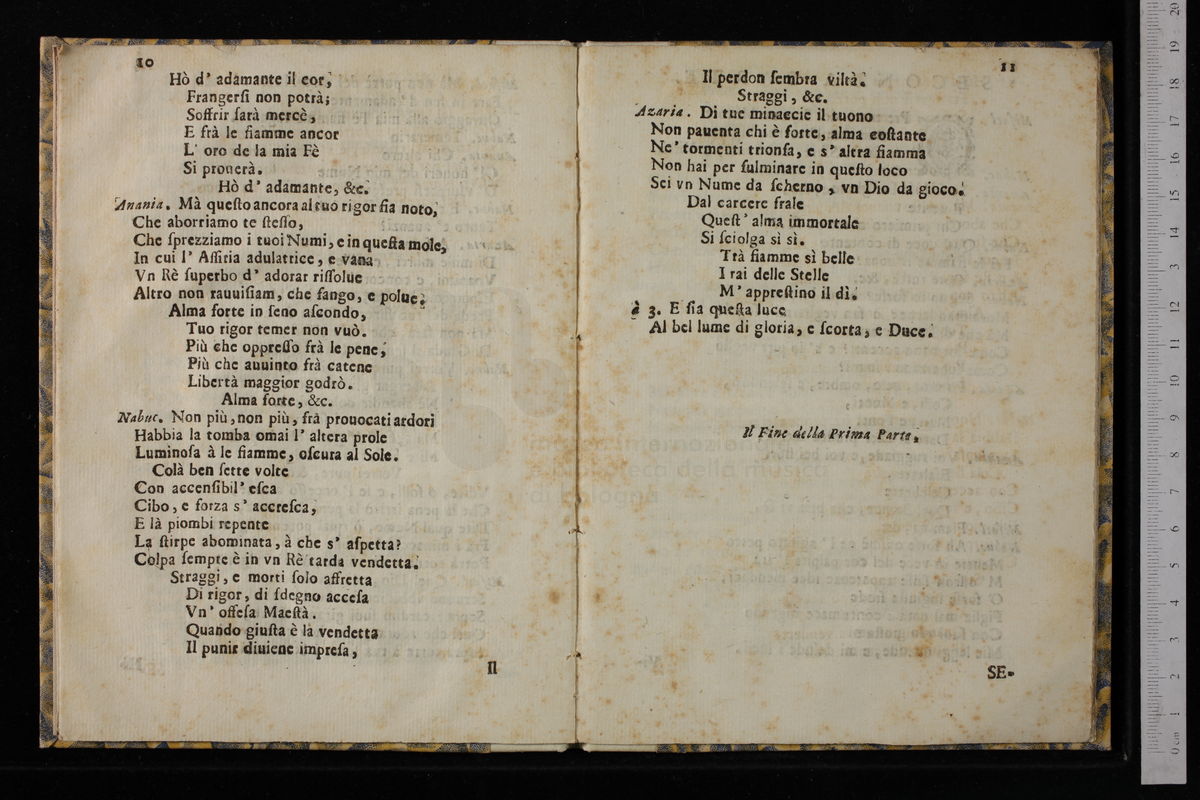 10
Hò d' adamante il cor,
Frangerſi non potrà;
Soffrir ſarà mercè,
E frà le fiamme ancor
L' oro de la mia Fè
Si prouerà.
Hò d' adamante, &c.
Anania. Mà queſto ancora al tuo rigor ſia noto,
Che aborriamo te ſteſſo,
Che ſprezziamo i tuoi Numi, e in queſta mole,
In cui l' Aſſiria adulatrice, e vana
Vn Rè ſuperbo d' adorar riſſolue
Altro non rauuiſiam, che fango, e polue.
Alma forte in ſeno aſcondo,
Tuo rigor temer non vuò.
Più che oppreſſo frà le pene,
Più che auuinto frà catene
Libertà maggior godrò.
Alma forte, &c.
Nabuc. Non più, non più, frà prouocati ardori
Habbia la tomba omai l' altera prole
Luminoſa à le fiamme, oſcura al Sole.
Colà ben ſette volte
Con accenſibil' eſca
Cibo, e forza s' accreſca,
E là piombi repente
La ſtirpe abominata, à che s' aſpetta?
Colpa ſempre è in vn Rè tarda vendetta.
Straggi, e morti ſolo affretta
Di rigor, di ſdegno acceſa
Vn' offeſa Maeſtà.
Quando giuſta è la vendetta
Il punir diuiene impreſa,
Il
11
Il perdon ſembra viltà.
Straggi, &c.
Azaria. Di tue minaccie il tuono
Non pauenta chi è forte, alma coſtante
Ne' tormenti trionfa, e s' altra fiamma
Non hai per fulminare in queſto loco
Sei vn Nume da ſcherno, vn Dio da gioco.
Dal carcere frale
Queſt' alma immortale
Si ſciolga sì sì.
Trà fiamme sì belle
I rai delle Stelle
M' appreſtino il dì.
à 3. E ſia queſta luce
Al bel lume di gloria, e ſcorta, e Duce.
Il Fine della Prima Parte.
SE-
museo internazionale
e biblioteca della musica
di bologna
0 cm 1 2 3 4 5 6 7 8 9 10 11 12 13 14 15 16 17 18 19 20